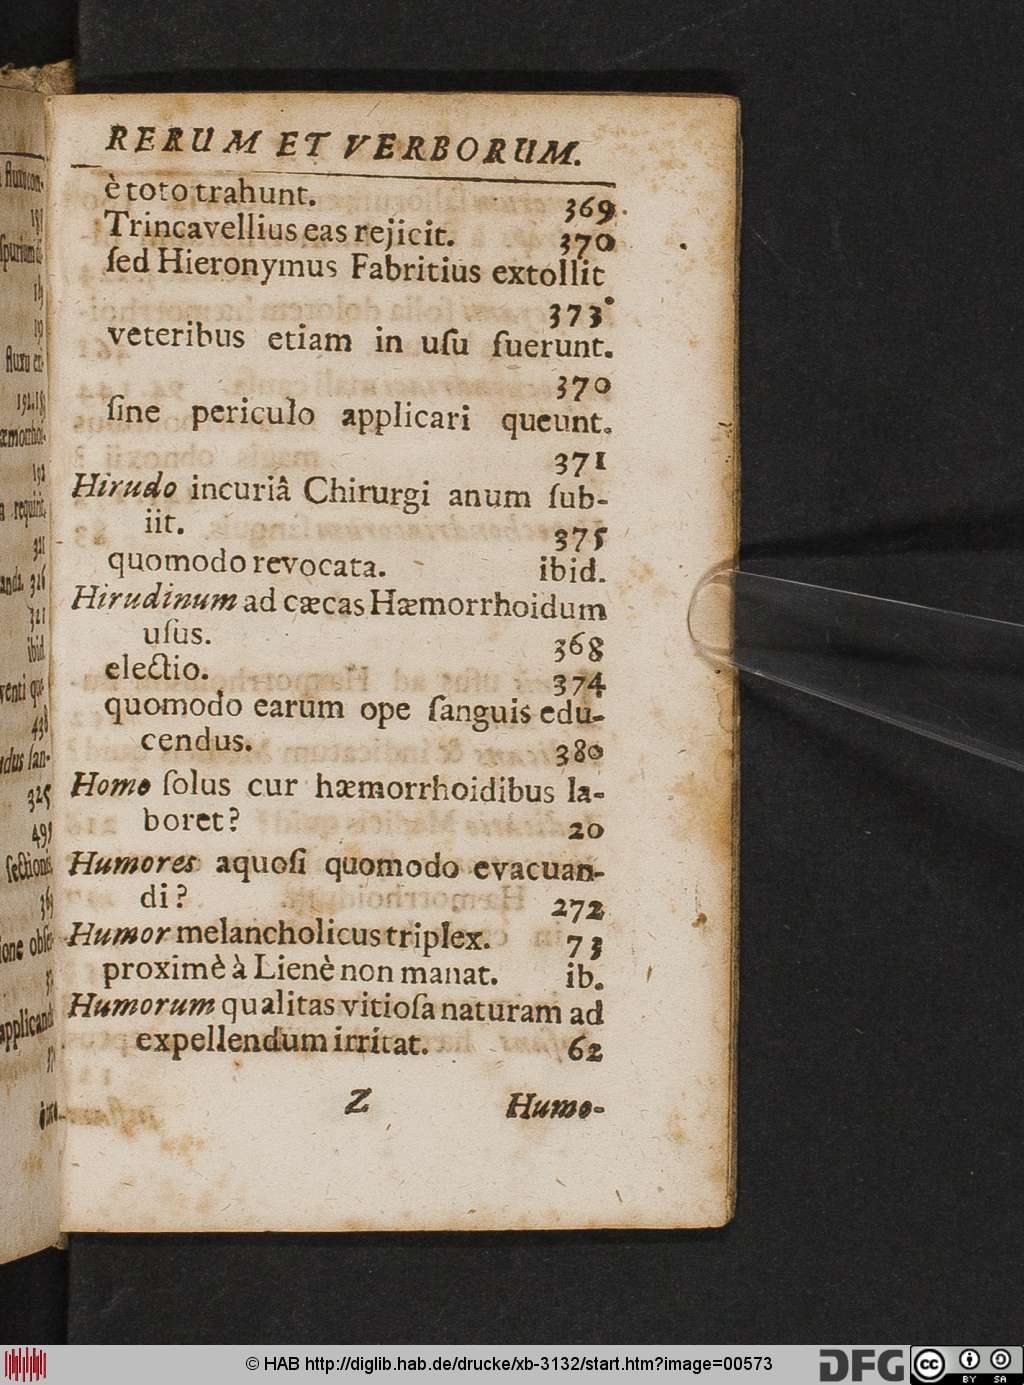 RERUM ET VERBORUM.
è toto trahunt. 369.
Trincavellius eas rejicit. 370
ſed Hieronymus Fabritius extollit
373
veteribus etiam in uſu fuerunt.
370
ſine periculo applicari queunt.
371
Hirudo incuriâ Chirurgi anum ſub-
iit. 375
quomodo revocata. ibid.
Hirudinum ad cæcas Hæmorrhoidum
uſus. 368
electio. 374
quomodo earum ope ſanguis edu-
cendus. 380
Homo ſolus cur hæmorrhoidibus la-
boret? 20
Humores aquoſi quomodo evacuan-
di? 272
Humor melancholicus triplex. 73
proximè à Lienè non manat. ib.
Humorum qualitas vitioſa naturam ad
expellendum irritat. 62
Z Humo-
© HAB http://diglib.hab.de/drucke/xb-3132/start.htm?image=00573
DFG
cc BY SA